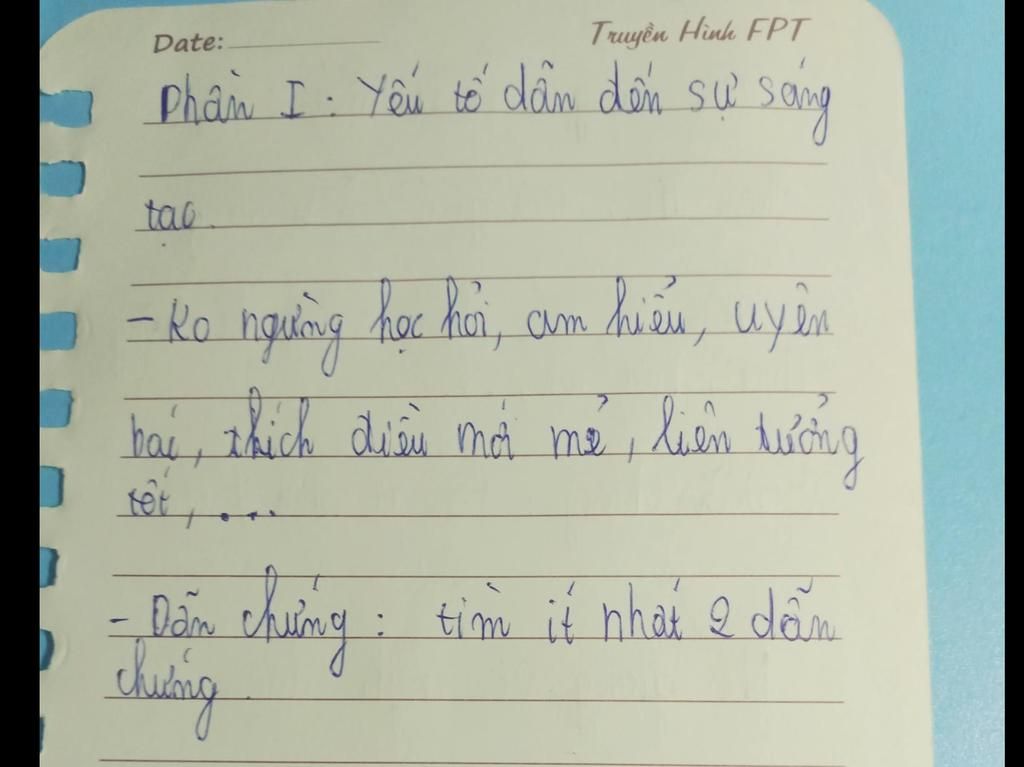 Date:
Truyền Hình FPT
Phần I: Yếu tố dẫn đến sự sáng
tạo.
- Ko ngừng học hỏi, am hiểu, uyên
bác, thích điều mới mẻ, liên tưởng
tốt, ....
- Dẫn chứng: tìm ít nhất 2 dẫn
chứng.